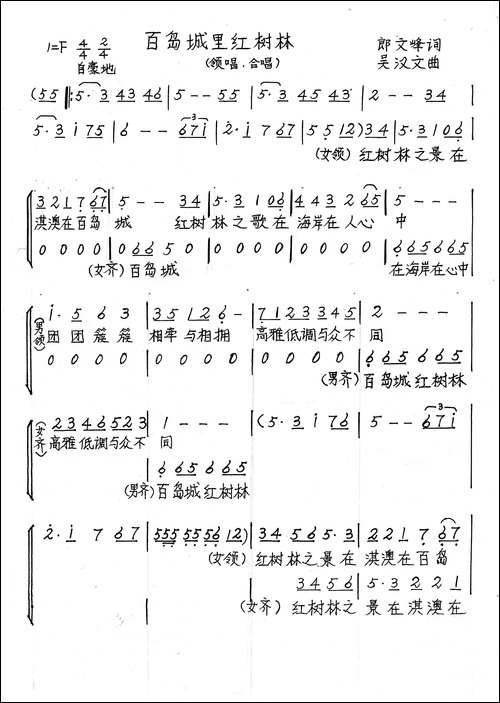 百岛城里红树林
1=F 4/4 2/4
自豪地
(领唱、合唱)
郎文峰词
吴汉文曲
(55 ‖: 5·3 43 46 | 5 - - 55 | 5·3 45 43 | 2 - - 34
5·3 i 75 | 6 - - 67i | 2·i 7 67 | 55 12) 34 | 5·3 10 6
(女领) 红树 林之景在
321767 | 5 - - 34 | 5·3 1 06 | 443 2 65 | 5 - - -
淇澳在百岛 城 红树 林之歌在 海岸在人心 中
0 0 0 0 | 0 66 5 0 | 0 0 0 0 | 0 0 0 0 | 665 665
(女齐) 百岛城 在海岸在心中
i· 5 6 3 | 35 12 6 - | 7123345 | 2 - - -
(男领) 团 团 簇 簇 相牵 与相拥 高雅低调与众不 间
0 0 0 0 | 0 0 0 0 | 0 0 0 0 | 665 665
(男齐) 百岛城红树林
2346523 | 1 - - - | (5·3 i 76 | 5 - - 67i
(女齐) 高雅低调与众不 间
665 665
(男齐) 百岛城红树林
2·i 7 67 | 555 55 56 12) | 34 56 5·3 | 221 7 67
(女领) 红树林之景在 淇澳在百岛
34 56 | 5·3 2 2 1
(女齐) 红树林之 景在淇澳在